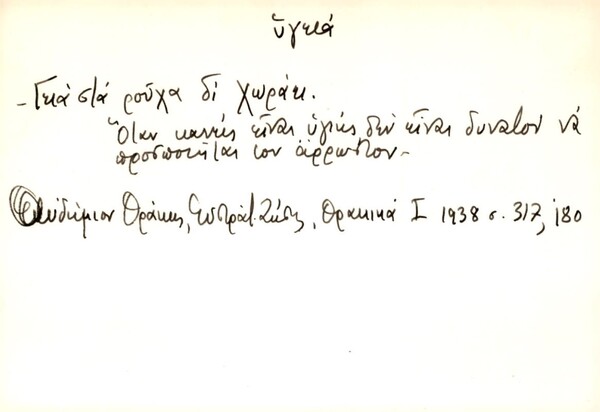 ὑγειά
- Γειὰ στὰ ροῦχα δὲ χωράει.
Ὅταν κανεὶς εἶναι ὑγιής, δὲν εἶναι δυνατὸν νὰ
προσποιῆται τὸν ἄρρωστον -
Διδυμότειχον Θράκης, Εὐστράτ. Ζήση, Θρακικὰ Ι 1938 σ. 317, 180